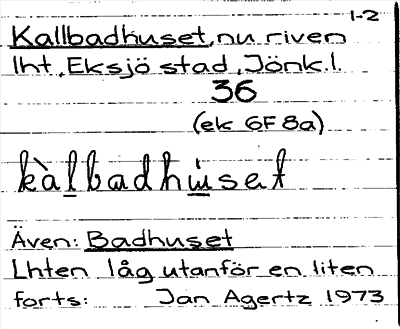 1-2
Kallbadhuset, nu riven
lht, Eksjö stad, Jönk.l.
36
(ek 6F 8a)
kàlbadhúset
Även: Badhuset
Lhten låg utanför en liten
forts: Jan Agertz 1973